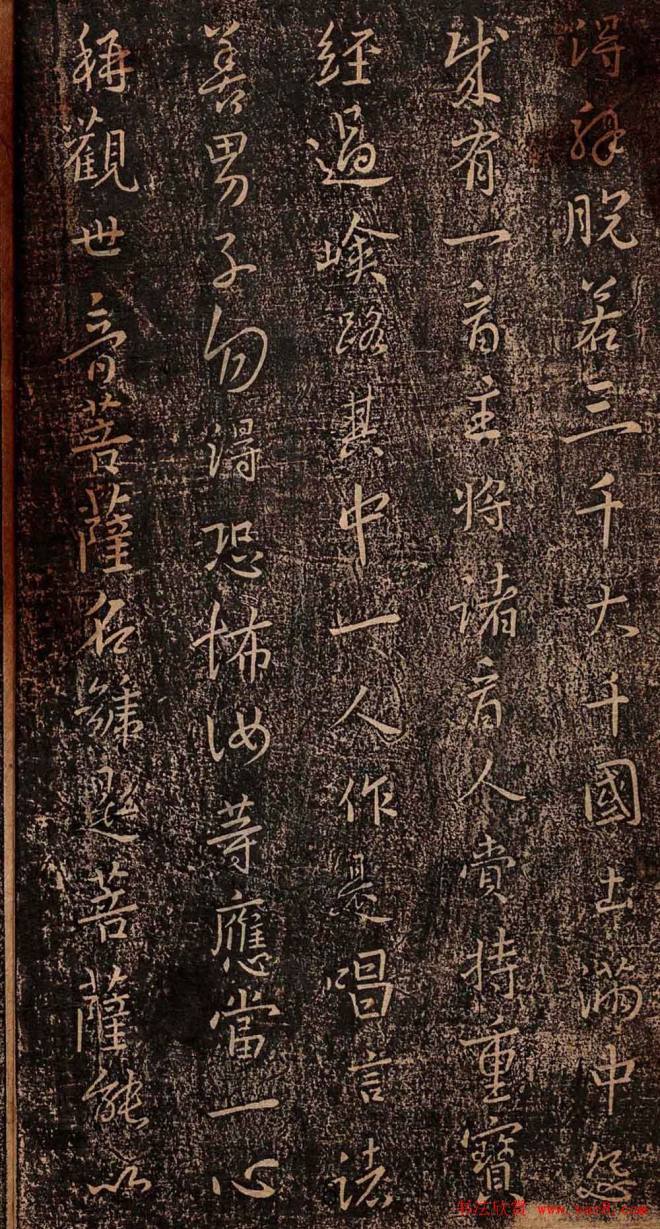 得解脫若三千大千國土滿中怨
賊有一商主將諸商人賫持重寶
經過嶮路其中一人作是唱言諸
善男子勿得恐怖汝等應當一心
稱觀世音菩薩名號是菩薩能以
书法欣赏